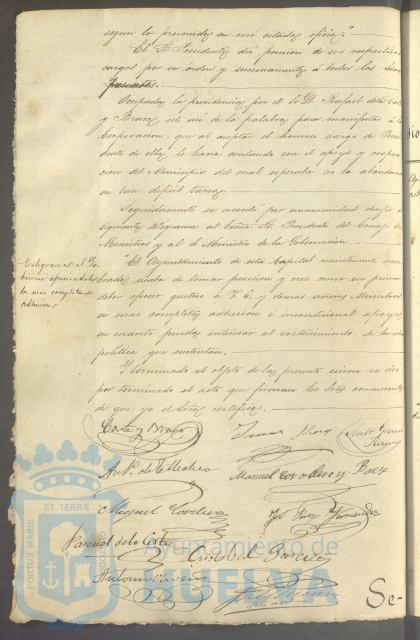 segun lo prevenido en mi citado oficio".
El Sr. Presidente dió posesion de sus respectivos
cargos por su órden y sucesivamente á todos los Sres.
presentes.
Ocupada la presidencia por el Sr. D. Rafael de la Corte
y Bravo, este usó de la palabra para manifestar á la
Corporacion, que al aceptar el honroso cargo de Presi-
dente de ella, lo hacia contando con el apoyo y coopera-
cion del Municipio del cual esperaba no le abandonara
en tan dificil tarea.
Seguidamente se acordó por unanimidad dirigir el
siguiente telegrama al Excmo. Sr. Presidente del Consejo de
Ministros y al de Ministro de la Gobernacion.
Telegrama al Go-
bierno ofreciendole
la mas completa
adhesion
"El Ayuntamiento de esta Capital nuevamente nom-
brado, acaba de tomar posesion y cree como su primer
deber ofrecer gustoso á V. E. y demas señores Ministros
su mas completa adhesion é incondicional apoyo
en cuanto pueda interesar al sostenimiento de la
politica que sustentan.
Y terminado el objeto de la presente sesion se dió
por terminado el acto que firman los Sres. concurrentes
de que yo el Srio. certifico.
Corte y Bravo
Manuel
Miguel Cordero
Pascual de la Corte
Cristobal Garcia
Antonio Oliveira
PORTUS MARIS
ET TERRAE
Ayuntamiento de
HUELVA
Se-